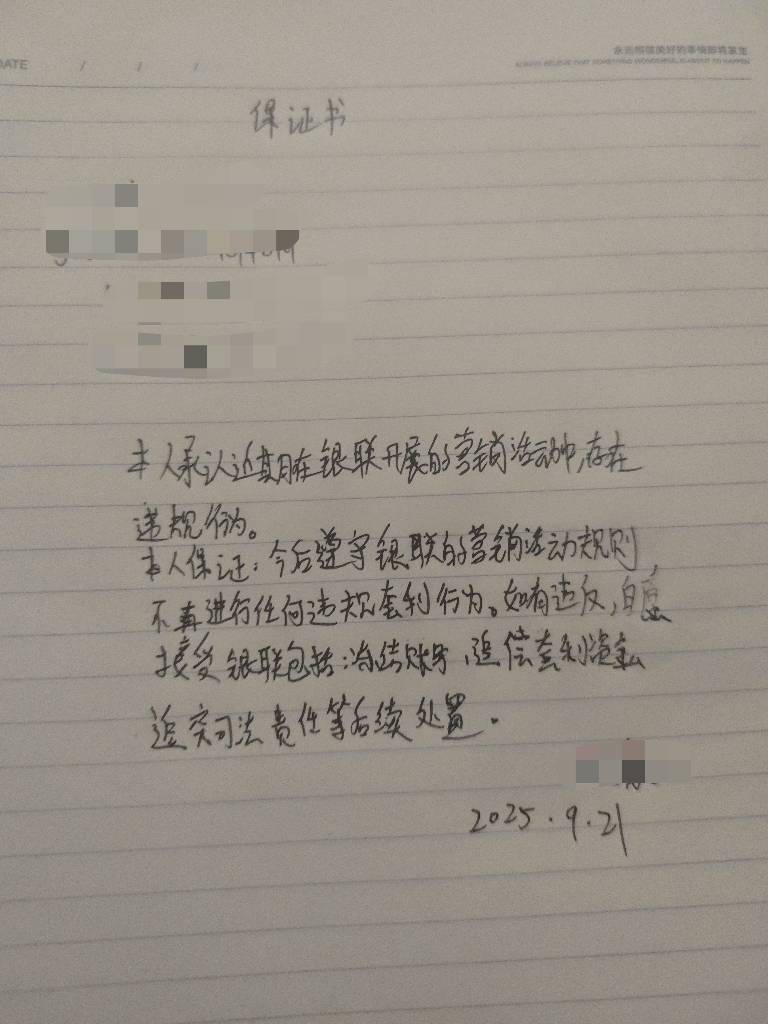 永远相信美好的事情即将发生
DATE / / /
ALWAYS BELIEVE THAT SOMETHING WONDERFUL IS ABOUT TO HAPPEN
保证书
本人承认近期在银联开展的营销活动中,存在
违规行为。
本人保证:今后遵守银联的营销活动规则,
不再进行任何违规套利行为。如有违反,自愿
接受银联包括:冻结账号、追偿套利资金
追究司法责任等后续处置。
2025.9.21